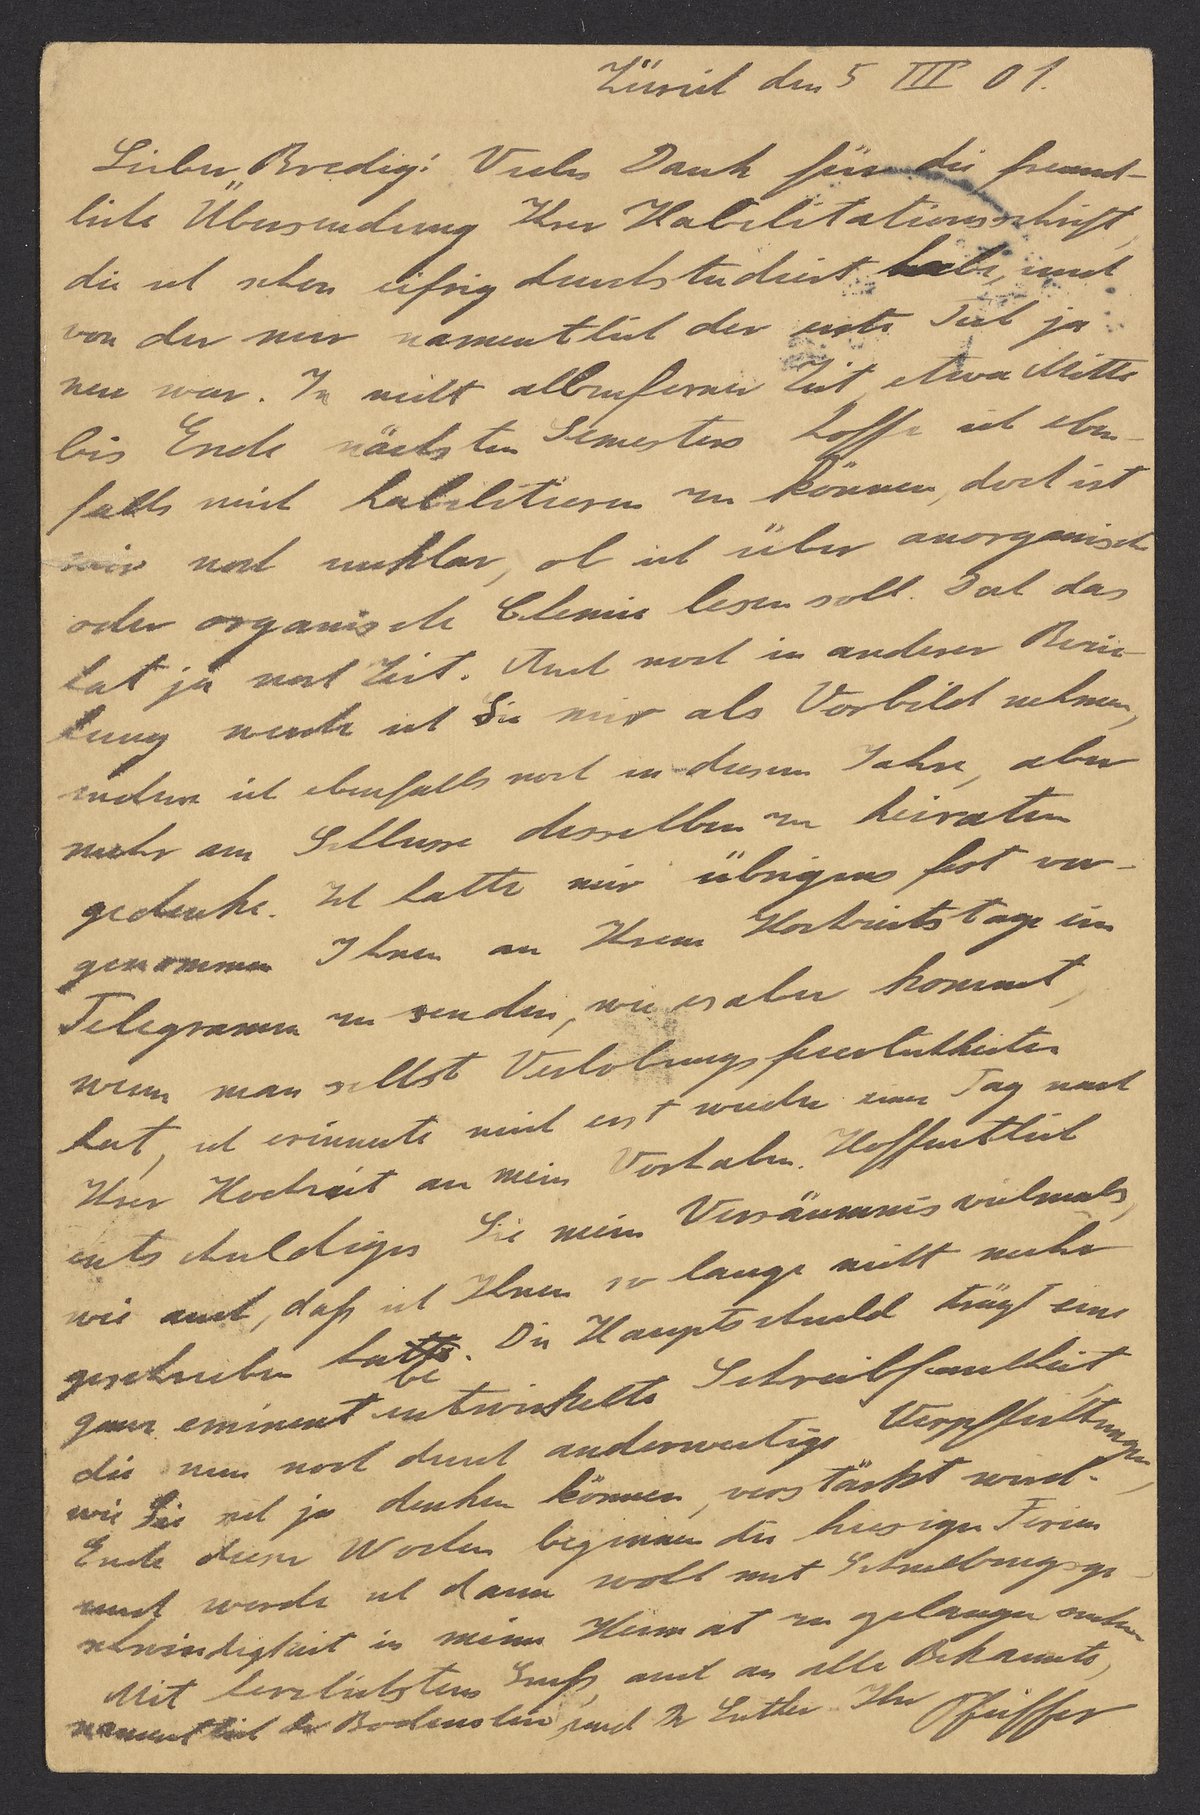 Zürich den 5 III 01.
Lieber Bredig! Vielen Dank für die freund-
liche Übersendung Ihrer Habilitationsschrift,
die ich schon eifrig durchstudiert habe, und
von der mir namentlich der erste Teil ja
neu war. In nicht allzuferner Zeit, etwa Mitte
bis Ende nächsten Semesters hoffe ich eben-
falls mich habilitieren zu können, doch ist
mir noch unklar, ob ich über anorganische
oder organische Chemie lesen soll. Doch das
hat ja noch Zeit. Auch noch in anderer Bezie-
hung werde ich Sie mir als Vorbild nehmen,
indem ich ebenfalls noch in diesem Jahre, aber
mehr am Schlusse desselben zu heiraten
gedenke. Ich hatte mir übrigens fest vor-
genommen Ihnen an Ihrem Hochzeitstage ein
Telegramm zu senden, wie es aber kommt,
wenn man selbst Verlobungsfeierlichkeiten
hat, ich erinnerte mich erst wieder einen Tag nach
Ihrer Hochzeit an mein Vorhaben. Hoffentlich
entschuldigen Sie mein Versäumnis vielmals,
wie auch, daß ich Ihnen so lange nicht mehr
geschrieben habe. Die Hauptschuld trägt eine
ganz eminent entwickelte Schreibfaulheit,
die nun noch durch anderweitige Verpflichtungen,
wie Sie sich ja denken können, verstärkt wird.
Ende dieser Woche beginnen die hiesigen Ferien
und werde ich dann wohl mit Schnellzugsge-
schwindigkeit in meine Heimat zu gelangen suchen
Mit herzlichstem Gruß, auch an alle Bekannte,
namentlich Dr Bodenstein und Dr Luther Ihr Pfeiffer